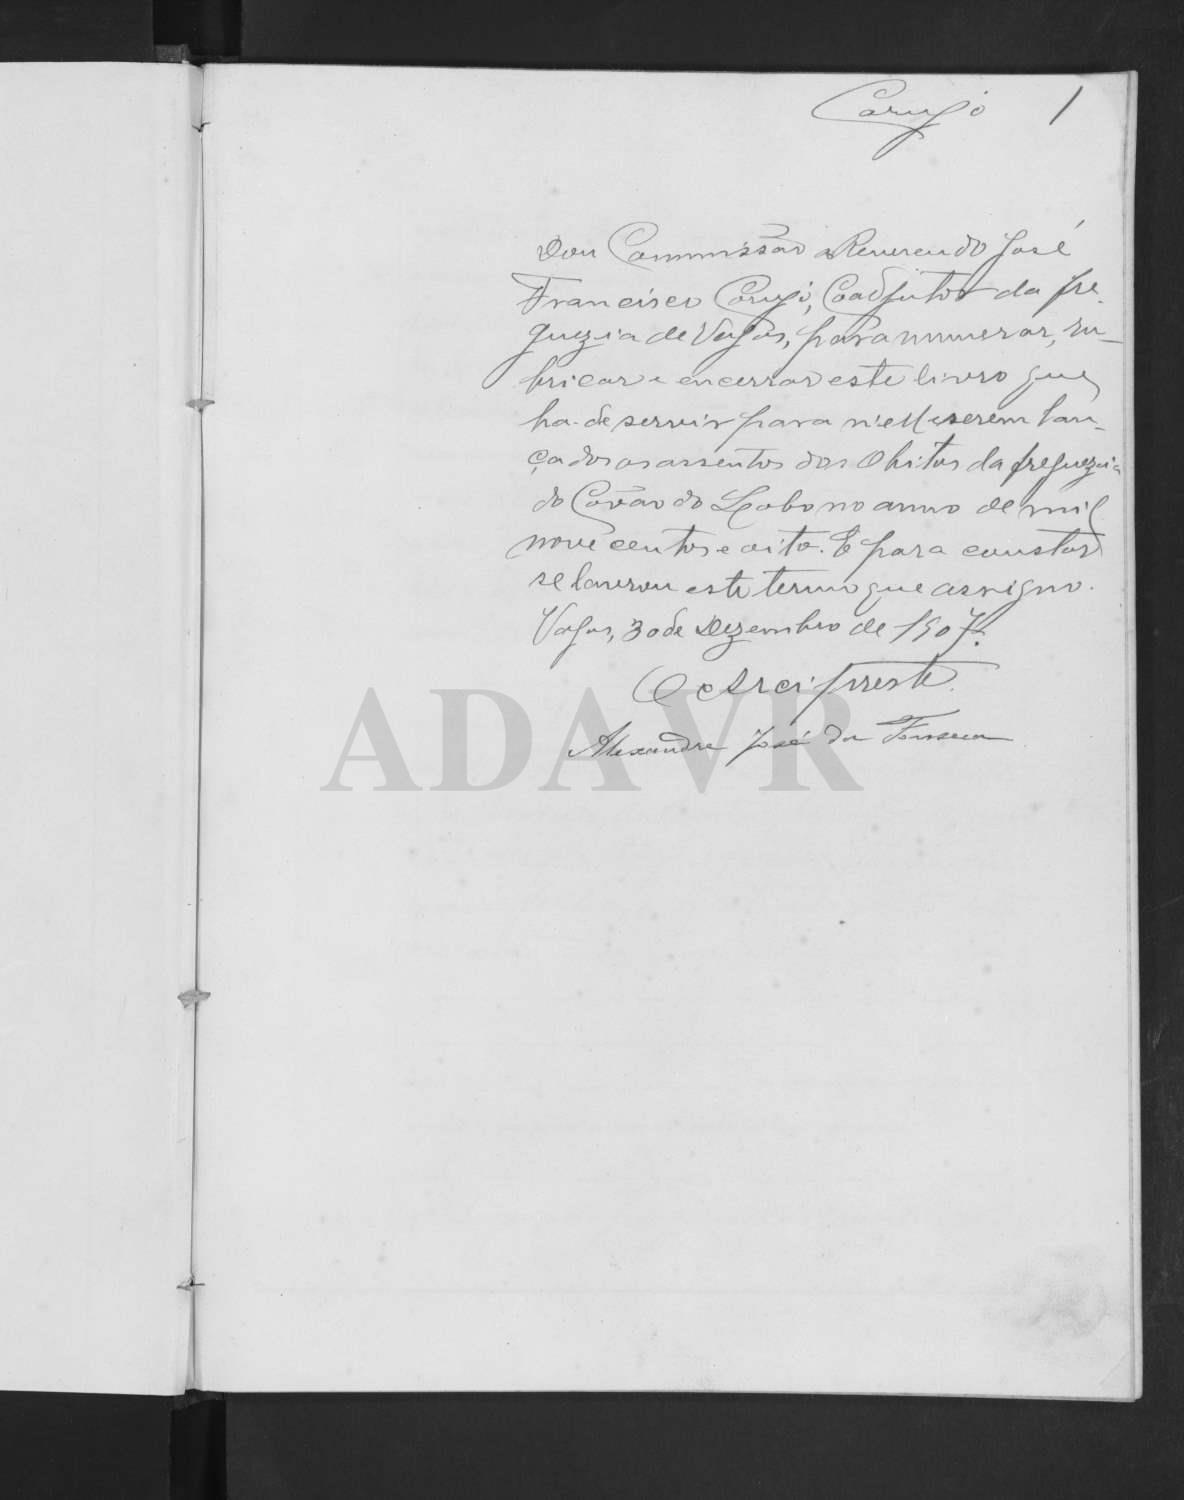 Corujo 1
Dou Commissão ao Reverendo José
Francisco Corujo, Coadjutor da fre-
guezia de Vagos, para numerar, ru-
bricar e encerrar este livro que
ha-de servir para n'elle serem lan-
çados os assentos dos Obitos da freguezia
do Covão do Lobo no anno de mil
nove centos e oito. E para constar
se lavrou este termo que assigno.
Vagos, 30 de Dezembro de 1907.
O Arcipreste
ADAVR
Alexandre José da Fonseca